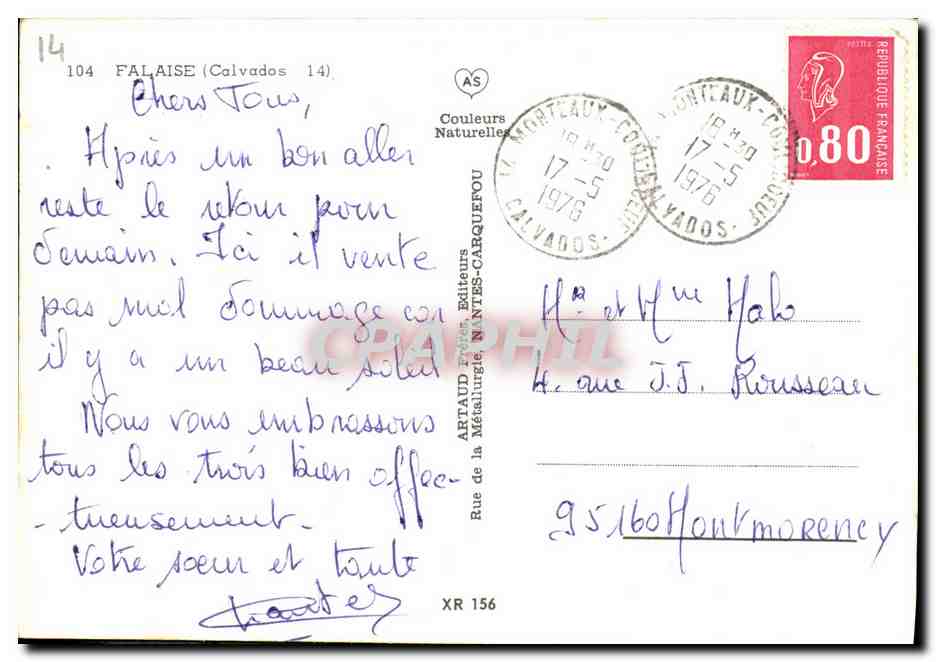 14
104 FALAISE (Calvados 14)
Chers Tous,
. Après un bon aller
reste le retour pour
demain. Ici il vente
pas mal dommage car
il y a un beau soleil
Nous vous embrassons
tous les trois bien affec-
- tueusement.
Votre sœur et tante
AS
Couleurs
Naturelles
ARTAUD Frères, Editeurs
Rue de la Métallurgie, NANTES-CARQUEFOU
XR 156
14 MORTEAUX-COULIBŒUF
18 H 30
17 - 5
1976
CALVADOS
MORTEAUX-COULIBŒUF
18 H 30
17 - 5
1976
CALVADOS
REPUBLIQUE FRANÇAISE
0,80
Mr et Mme Malo
4. rue J.J. Rousseau
95160 Montmorency
CPAPHIL